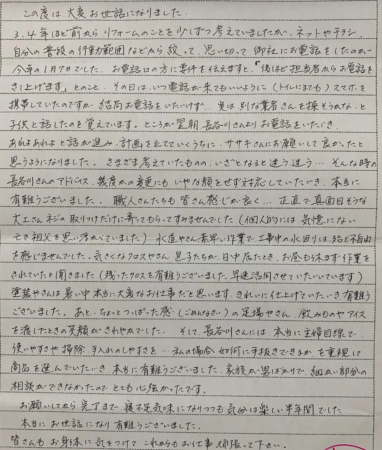 この度は、大変お世話になりました。
3.4年ほど前からリフォームのことを少しずつ考えていましたが、ネットやチラシ、
自分の普段の行動範囲などから絞って、思い切って御社にお電話をしたのが
今年の1月7日でした。お電話口の方に要件を伝えますと、「後ほど担当者からお電話を
さし上げます」とのこと、その日は、いつ電話が来てもいいように(トイレにまでも)スマホを
携帯していたのですが結局お電話をいただけず、実は別な業者さんを探そうかな、と
子供と話したのを覚えています。ところが翌朝長谷川さんよりお電話をいただき、
あれよあれよと話が進み、計画を立てていくうちに、ササキさんにお願いして良かったと
思うようになりました。さまざま考えていたものの、いざとなると迷う迷う…そんな時の
長谷川さんのアドバイス、幾度かの変更にもいやな顔をせず対応していただき、本当に
有難うございました。職人さんたちも皆さん感じが良く…正直で真面目そうな
大工さん ネジの取りつけだけに寄ってもらってすみませんでした(個人的には気憶にない
亡き祖父を思い浮かべていました)水道やさん素早い作業で工事中の水回りは殆ど不自由
を感じませんでした。気さくなクロスやさん 息子たちが、日中居たとき、お昼も休まず作業を
されていたと聞きました(残ったクロスを有難うございました。早速活用させていただいています)
塗装やさんは暑い中本当に大変なお仕事だと思います。きれいに仕上げていただき有難う
ございました。あと、ちょっとつっぱった感じ(ごめんなさい)の足場やさん 飲みものやアイス
を渡したときの笑顔がさわやかでした。そして、長谷川さんには本当に主婦目線で
使いやすさや掃除、手入れのしやすさを…私の場合如何に手抜きできるかを重視に
商品を選んでいただき本当に有難うございました。家族が男ばかりで細かい部分の
相談ができなかったのでとても心強かったです。
お願いしてから完了まで、寝不足気味になりつつも気分は楽しい半年間でした。
本当にお世話になり有難うございました。
皆さんもお身体に気をつけてこれからもお仕事頑張って下さい。